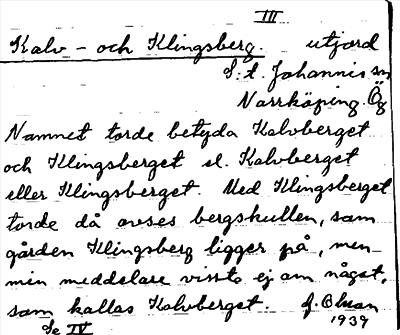 III
Kalv- och Klingsberg. utjord
S:t Johannis sn
Norrköping. Ög
Namnet torde betyda Kalvberget
och Klingsberget el. Kalvberget
eller Klingsberget. Med Klingsberget
torde då avses bergskullen, som
gården Klingsberg ligger på, men
min meddelare visste ej om något,
som kallas Kalvberget. J. Olson
Se IV 1939